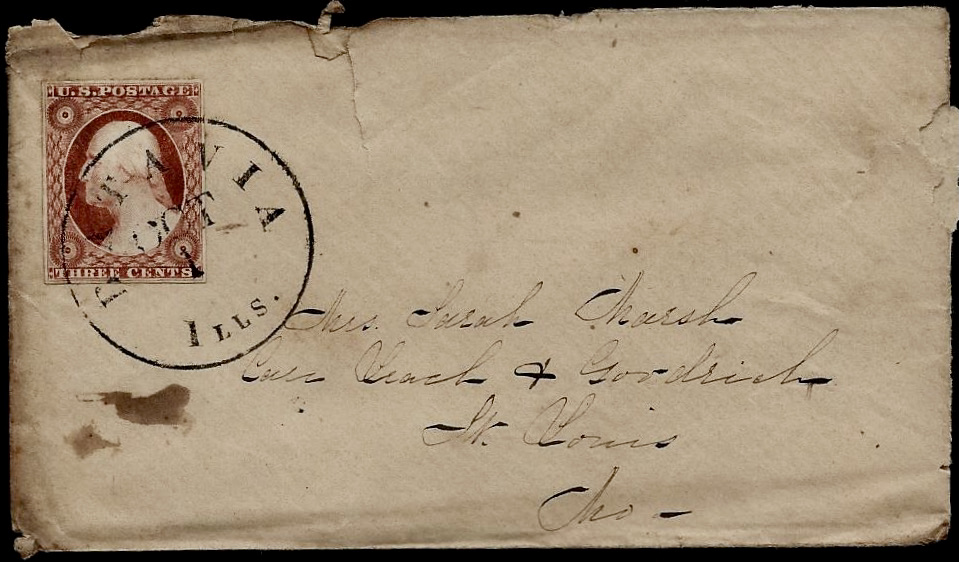 U.S. POSTAGE
THREE CENTS
BATAVIA
OCT
1
ILLS.
Mrs. Sarah Marsh
Care Beach & Goodrich
St. Louis
Mo -